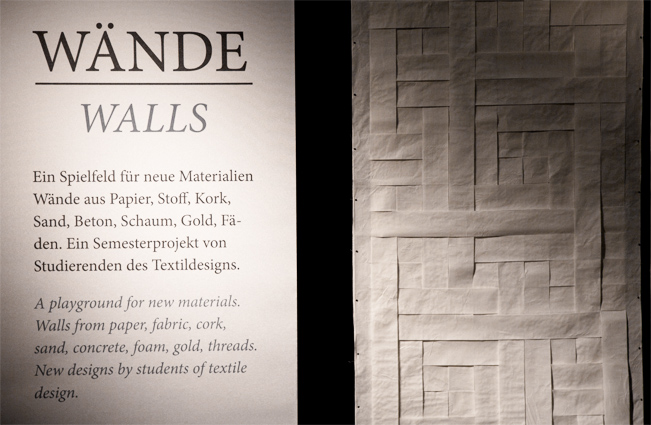 WÄNDE
WALLS
Ein Spielfeld für neue Materialien
Wände aus Papier, Stoff, Kork,
Sand, Beton, Schaum, Gold, Fä-
den. Ein Semesterprojekt von
Studierenden des Textildesigns.
A playground for new materials.
Walls from paper, fabric, cork,
sand, concrete, foam, gold, threads.
New designs by students of textile
design.